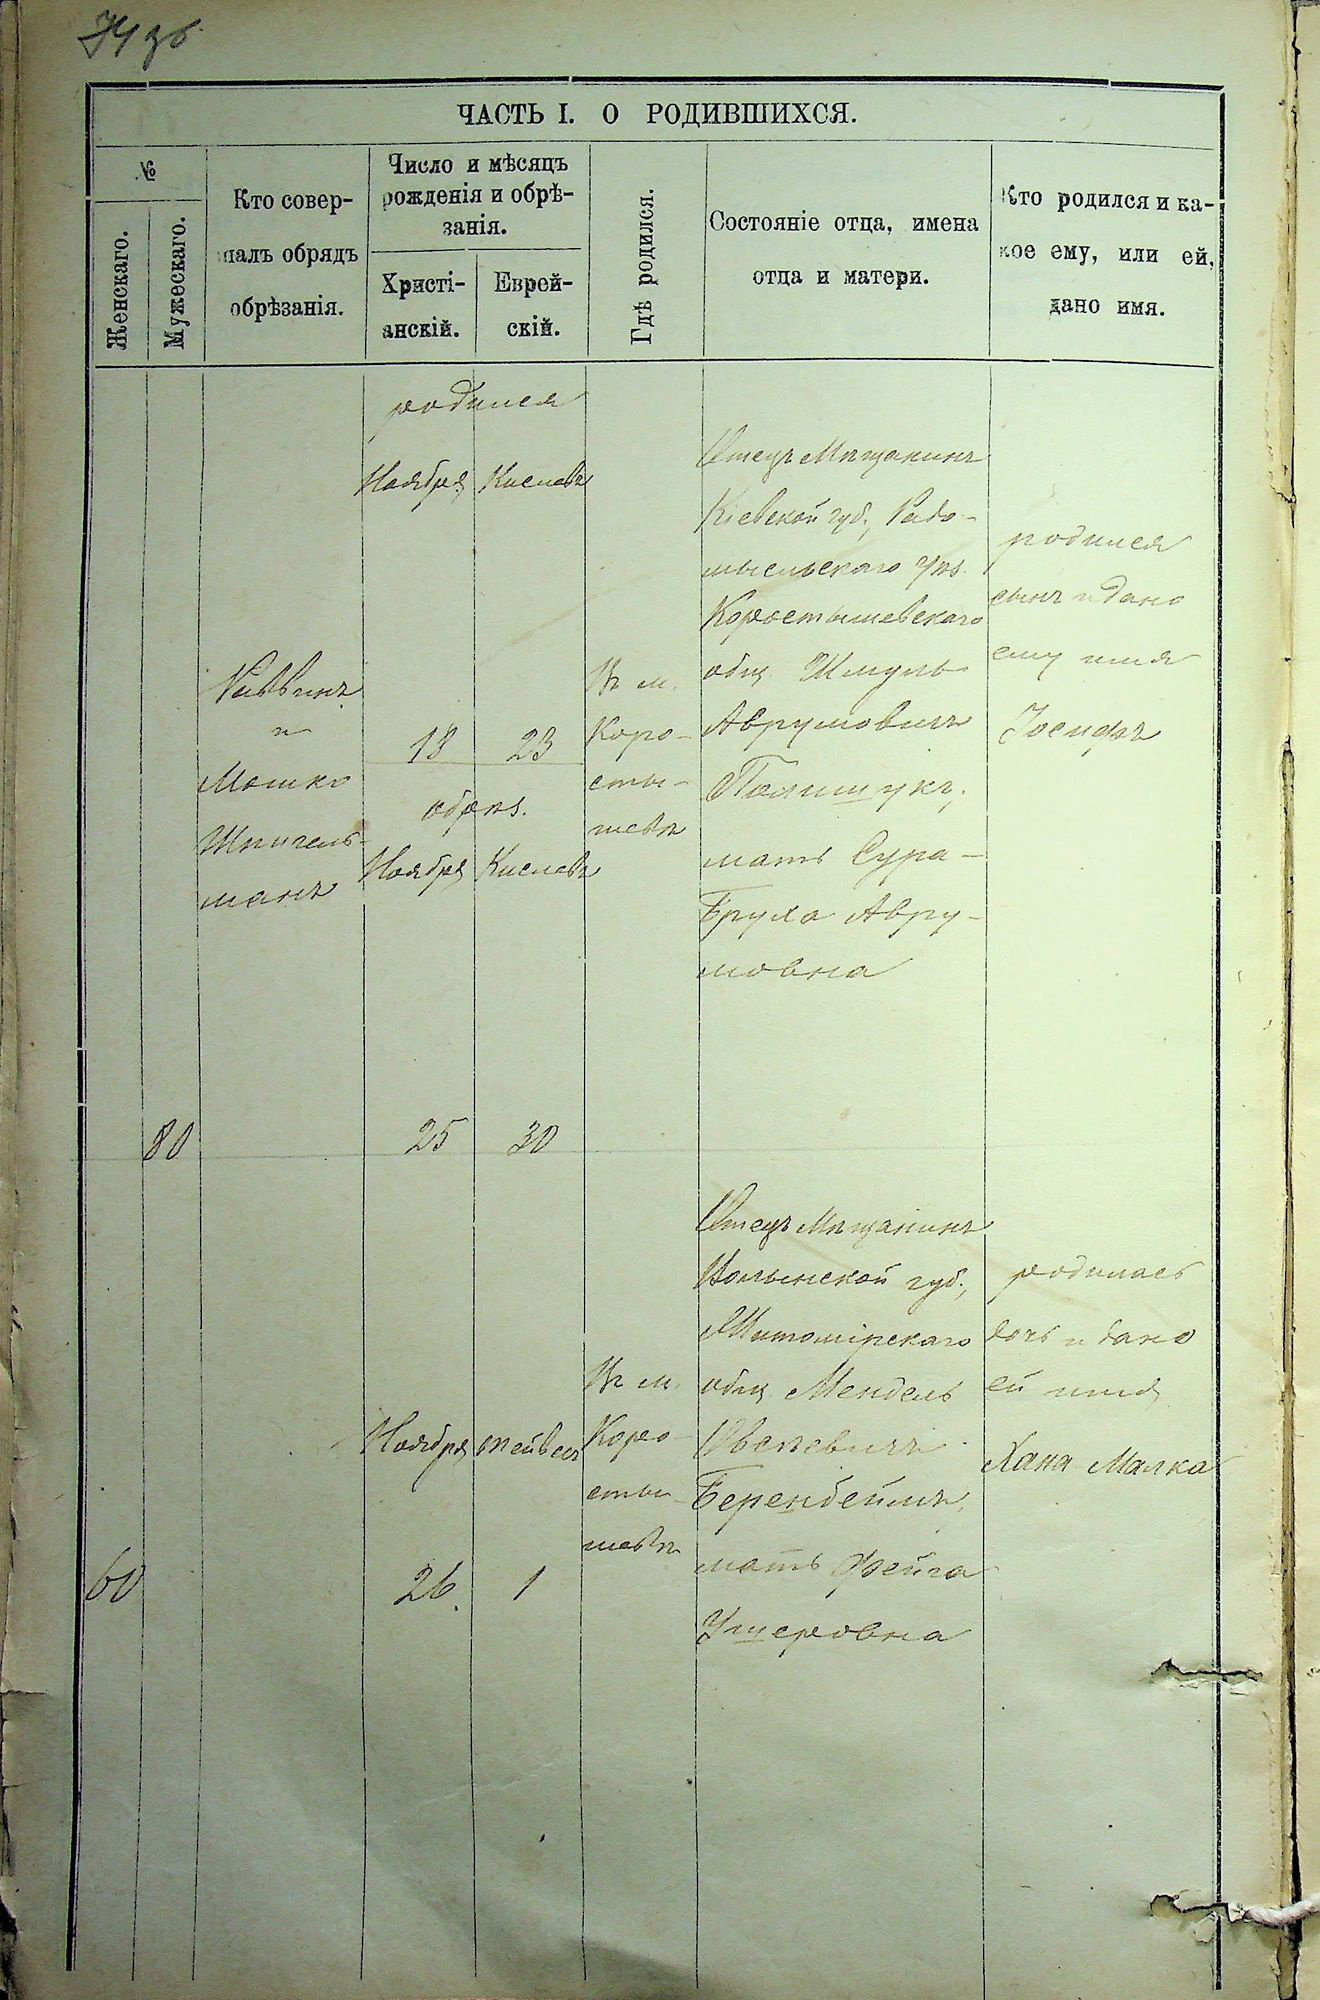 74 зв.
ЧАСТЬ I. О РОДИВШИХСЯ.
№
Женскаго.
Мужескаго.
Кто совер-
шалъ обрядъ
обрѣзанія.
Число и мѣсяцъ
рожденія и обрѣ-
занія.
Христі-
анскій.
Еврей-
скій.
Гдѣ родился.
Состояніе отца, имена
отца и матери.
Кто родился и ка-
кое ему, или ей,
дано имя.
80
Раввинъ
и
Мошко
Шпигель-
манъ
родился
Ноября Кислевъ
18 23
обрѣз.
Ноября Кислевъ
25 30
Въ м.
Коро-
сты-
шевѣ
Отецъ Мѣщанинъ
Кіевской губ., Радо-
мысльскаго уѣз.
Коростышевскаго
общ. Шмуль
Аврумовичъ
Полишукъ,
мать Сура-
Бруха Авру-
мовна
родился
сынъ и дано
ему имя
Іосифъ
60
Ноября Тейвесъ
26 1
Въ м.
Коро-
сты-
шевѣ
Отецъ Мѣщанинъ
Волынской губ.,
Житомірскаго
общ. Мендель
Овсѣевичъ
Беренбеймъ,
мать Фейга
Ушеровна
родилась
дочь и дано
ей имя
Хана Малка